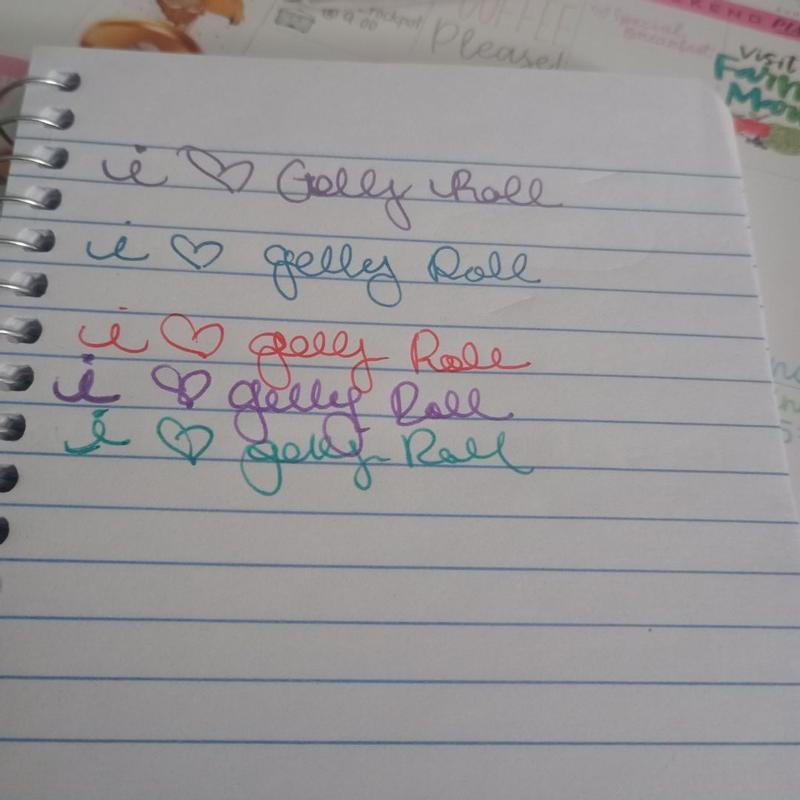 COFFEE
Please!
visit
Farm
i ♡ Gelly Roll
i ♡ gelly Roll
i ♡ gelly Roll
i ♡ gelly Roll
i ♡ gelly Roll